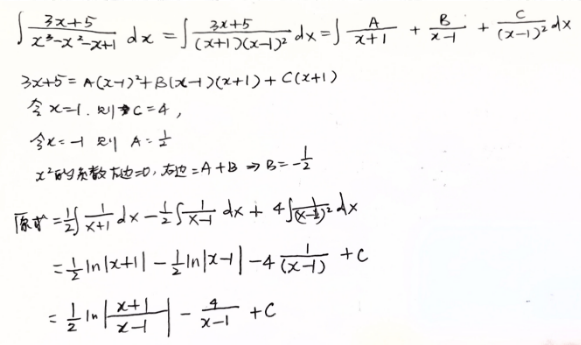 ∫ (3x+5)/(x³-x²-x+1) dx = ∫ (3x+5)/((x+1)(x-1)²) dx = ∫ A/(x+1) + B/(x-1) + C/(x-1)² dx
3x+5 = A(x-1)² + B(x-1)(x+1) + C(x+1)
令 x=1. 则 C=4,
令x=-1 则 A=1/2
x²的系数左边=0, 右边=A+B ⇒ B=-1/2
原式 = 1/2 ∫ 1/(x+1) dx - 1/2 ∫ 1/(x-1) dx + 4∫ 1/(x-1)² dx
= 1/2 ln|x+1| - 1/2 ln|x-1| - 4 1/(x-1) + C
= 1/2 ln |(x+1)/(x-1)| - 4/(x-1) + C